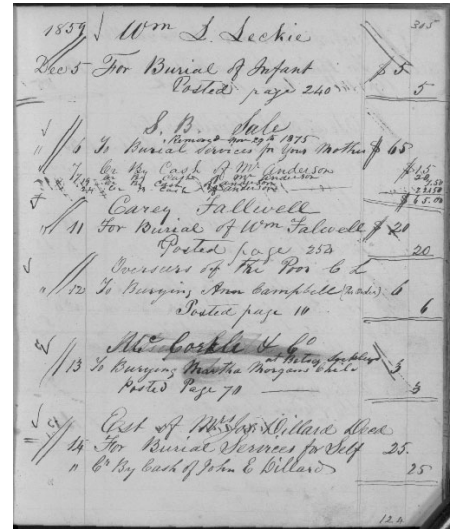 1859 Wm L. Leckie 305
Dec 5 For Burial of Infant $ 5
Posted page 240 5
S. B. Sale
" 6 To Burial Services for Your Mother $ 65
7 Cr By Cash of Mr Anderson $15
$65.00
Carey Fallwell
" 11 For Burial of Wm Falwell $ 20
Posted page 254 20
Overseers of the Poor C L
" 12 To Burying Ann Campbell 6
Posted page 10 6
McCorkle & Co
13 To Burying Martha Morgans Child 3
Posted Page 70 3
Est of Mrs Dillard Decd
14 For Burial Services for Self 25.
" Cr By Cash of John E Dillard 25
124